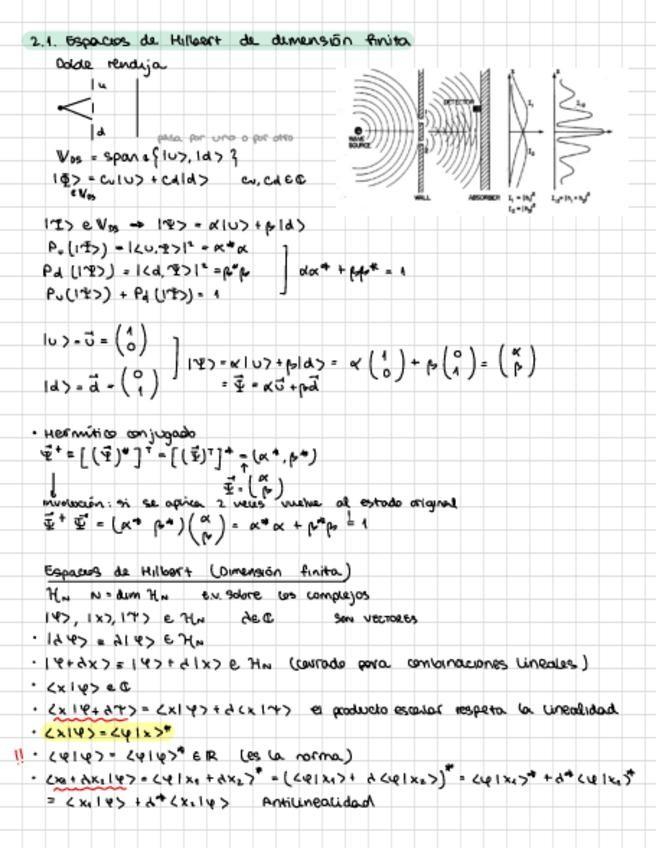 2.1. Espacios de Hilbert de dimensión finita
Doble rendija
u
d
pasa por uno o por otro
V_DS = span{|u>, |d>}
|Φ> = Cu|u> + Cd|d>   Cu, Cd ∈ ℂ
∈ V_DS
WAVE SOURCE
DETECTOR
WALL
ABSORBER
I₁
I₂
I₁₂
x
x
I₁ = |h₁|²
I₂ = |h₂|²
I₁₂ = |h₁ + h₂|²
|Ψ> ∈ V_DS → |Ψ> = α|u> + β|d>
Pu(|Ψ>) = |<u,Ψ>|² = α*α
Pd(|Ψ>) = |<d,Ψ>|² = β*β
αα* + ββ* = 1
Pu(|Ψ>) + Pd(|Ψ>) = 1
|u> = u⃗ = (1 0)
|d> = d⃗ = (0 1)
|Ψ> = α|u> + β|d> = α(1 0) + β(0 1) = (α β)
= Ψ⃗ = αu⃗ + βd⃗
• Hermítico conjugado
Ψ⃗⁺ = [(Ψ⃗)*]ᵀ = [(Ψ⃗)ᵀ]* = (α*, β*)
Ψ⃗ = (α β)
involución: si se aplica 2 veces vuelve al estado original
Ψ⃗⁺ Ψ⃗ = (α* β*)(α β) = α*α + β*β = 1
Espacios de Hilbert (Dimensión finita)
H_N   N = dim H_N   e.v. sobre los complejos
|φ>, |χ>, |τ> ∈ H_N   λ ∈ ℂ   SON VECTORES
• |λφ> = λ|φ> ∈ H_N
• |φ+λχ> = |φ> + λ|χ> ∈ H_N (cerrado para combinaciones lineales)
• <χ|φ> ∈ ℂ
• <χ|φ+λτ> = <χ|φ> + λ<χ|τ> el producto escalar respeta la linealidad
• <χ|φ> = <φ|χ>*
!! • <φ|φ> = <φ|φ>* ∈ ℝ (es la norma)
• <χ₁+λχ₂|φ> = <φ|χ₁+λχ₂>* = (<φ|χ₁> + λ<φ|χ₂>)* = <φ|χ₁>* + λ*<φ|χ₂>*
= <χ₁|φ> + λ*<χ₂|φ>   Antilinealidad